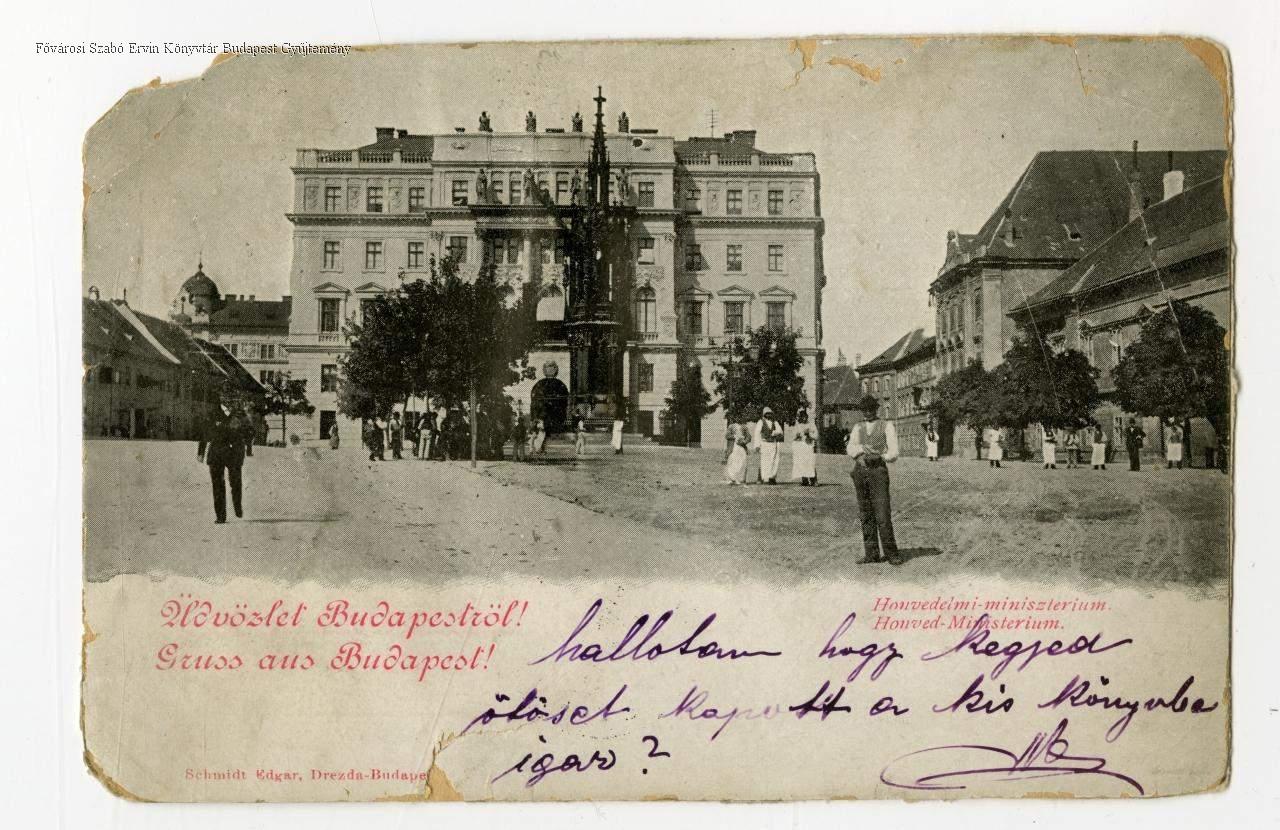 Fővárosi Szabó Ervin Könyvtár Budapest Gyűjtemény
Üdvözlet Budapestről!
Gruss aus Budapest!
Honvedelmi-miniszterium.
Honved-Ministerium.
hallotam hogy kegyed
ötöset kapott a kis könyvbe
igaz?
Schmidt Edgar, Drezda-Budape